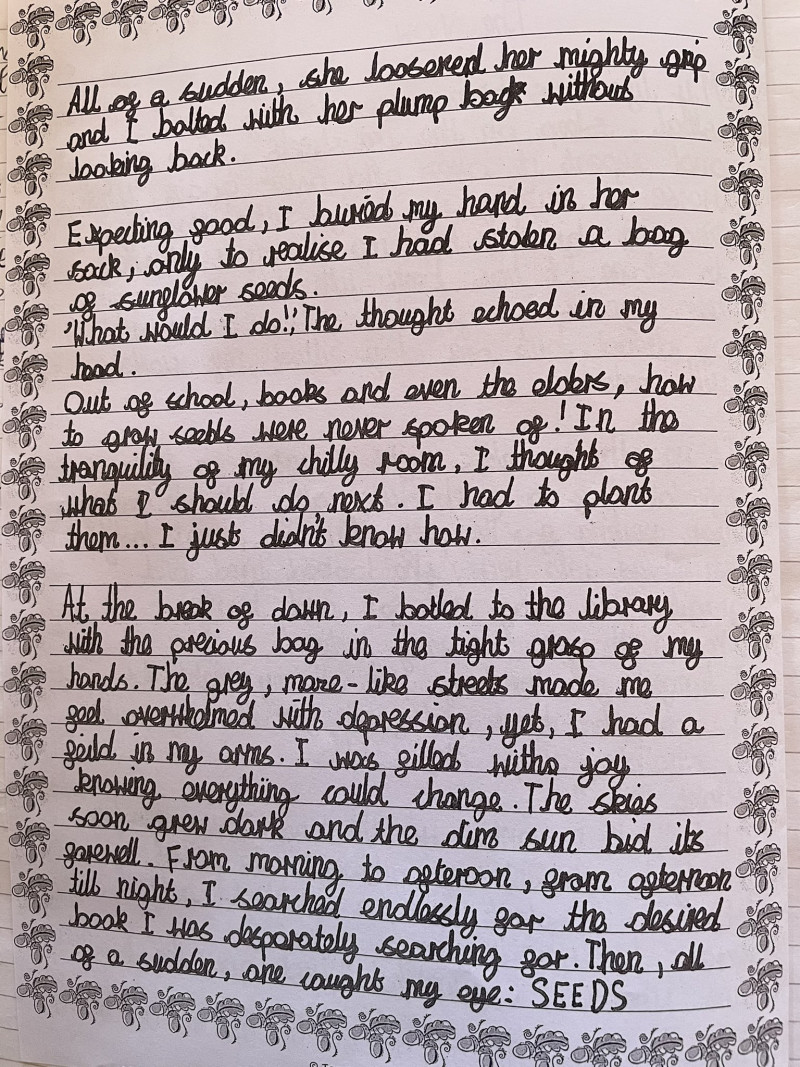 All of a sudden, she loosened her mighty grip
and I bolted with her plump bag without
looking back.
Expecting food, I buried my hand in her
sack, only to realise I had stolen a bag
of sunflower seeds.
'What would I do!', The thought echoed in my
head.
Out of school, books and even the elders, how
to grow seeds were never spoken of! In the
tranquility of my chilly room, I thought of
what I should do next. I had to plant
them... I just didn't know how.
At the break of dawn, I botled to the library
with the precious bag in the tight grasp of my
hands. The grey, maze-like streets made me
feel overwhelmed with depression, yet, I had a
feild in my arms. I was filled with joy
knowing everything could change. The skies
soon grew dark and the dim sun bid its
farewell. From morning to afteroon, from afternoon
till night, I searched endlessly for the desired
book I was desparately searching for. Then, all
of a sudden, one caught my eye: SEEDS